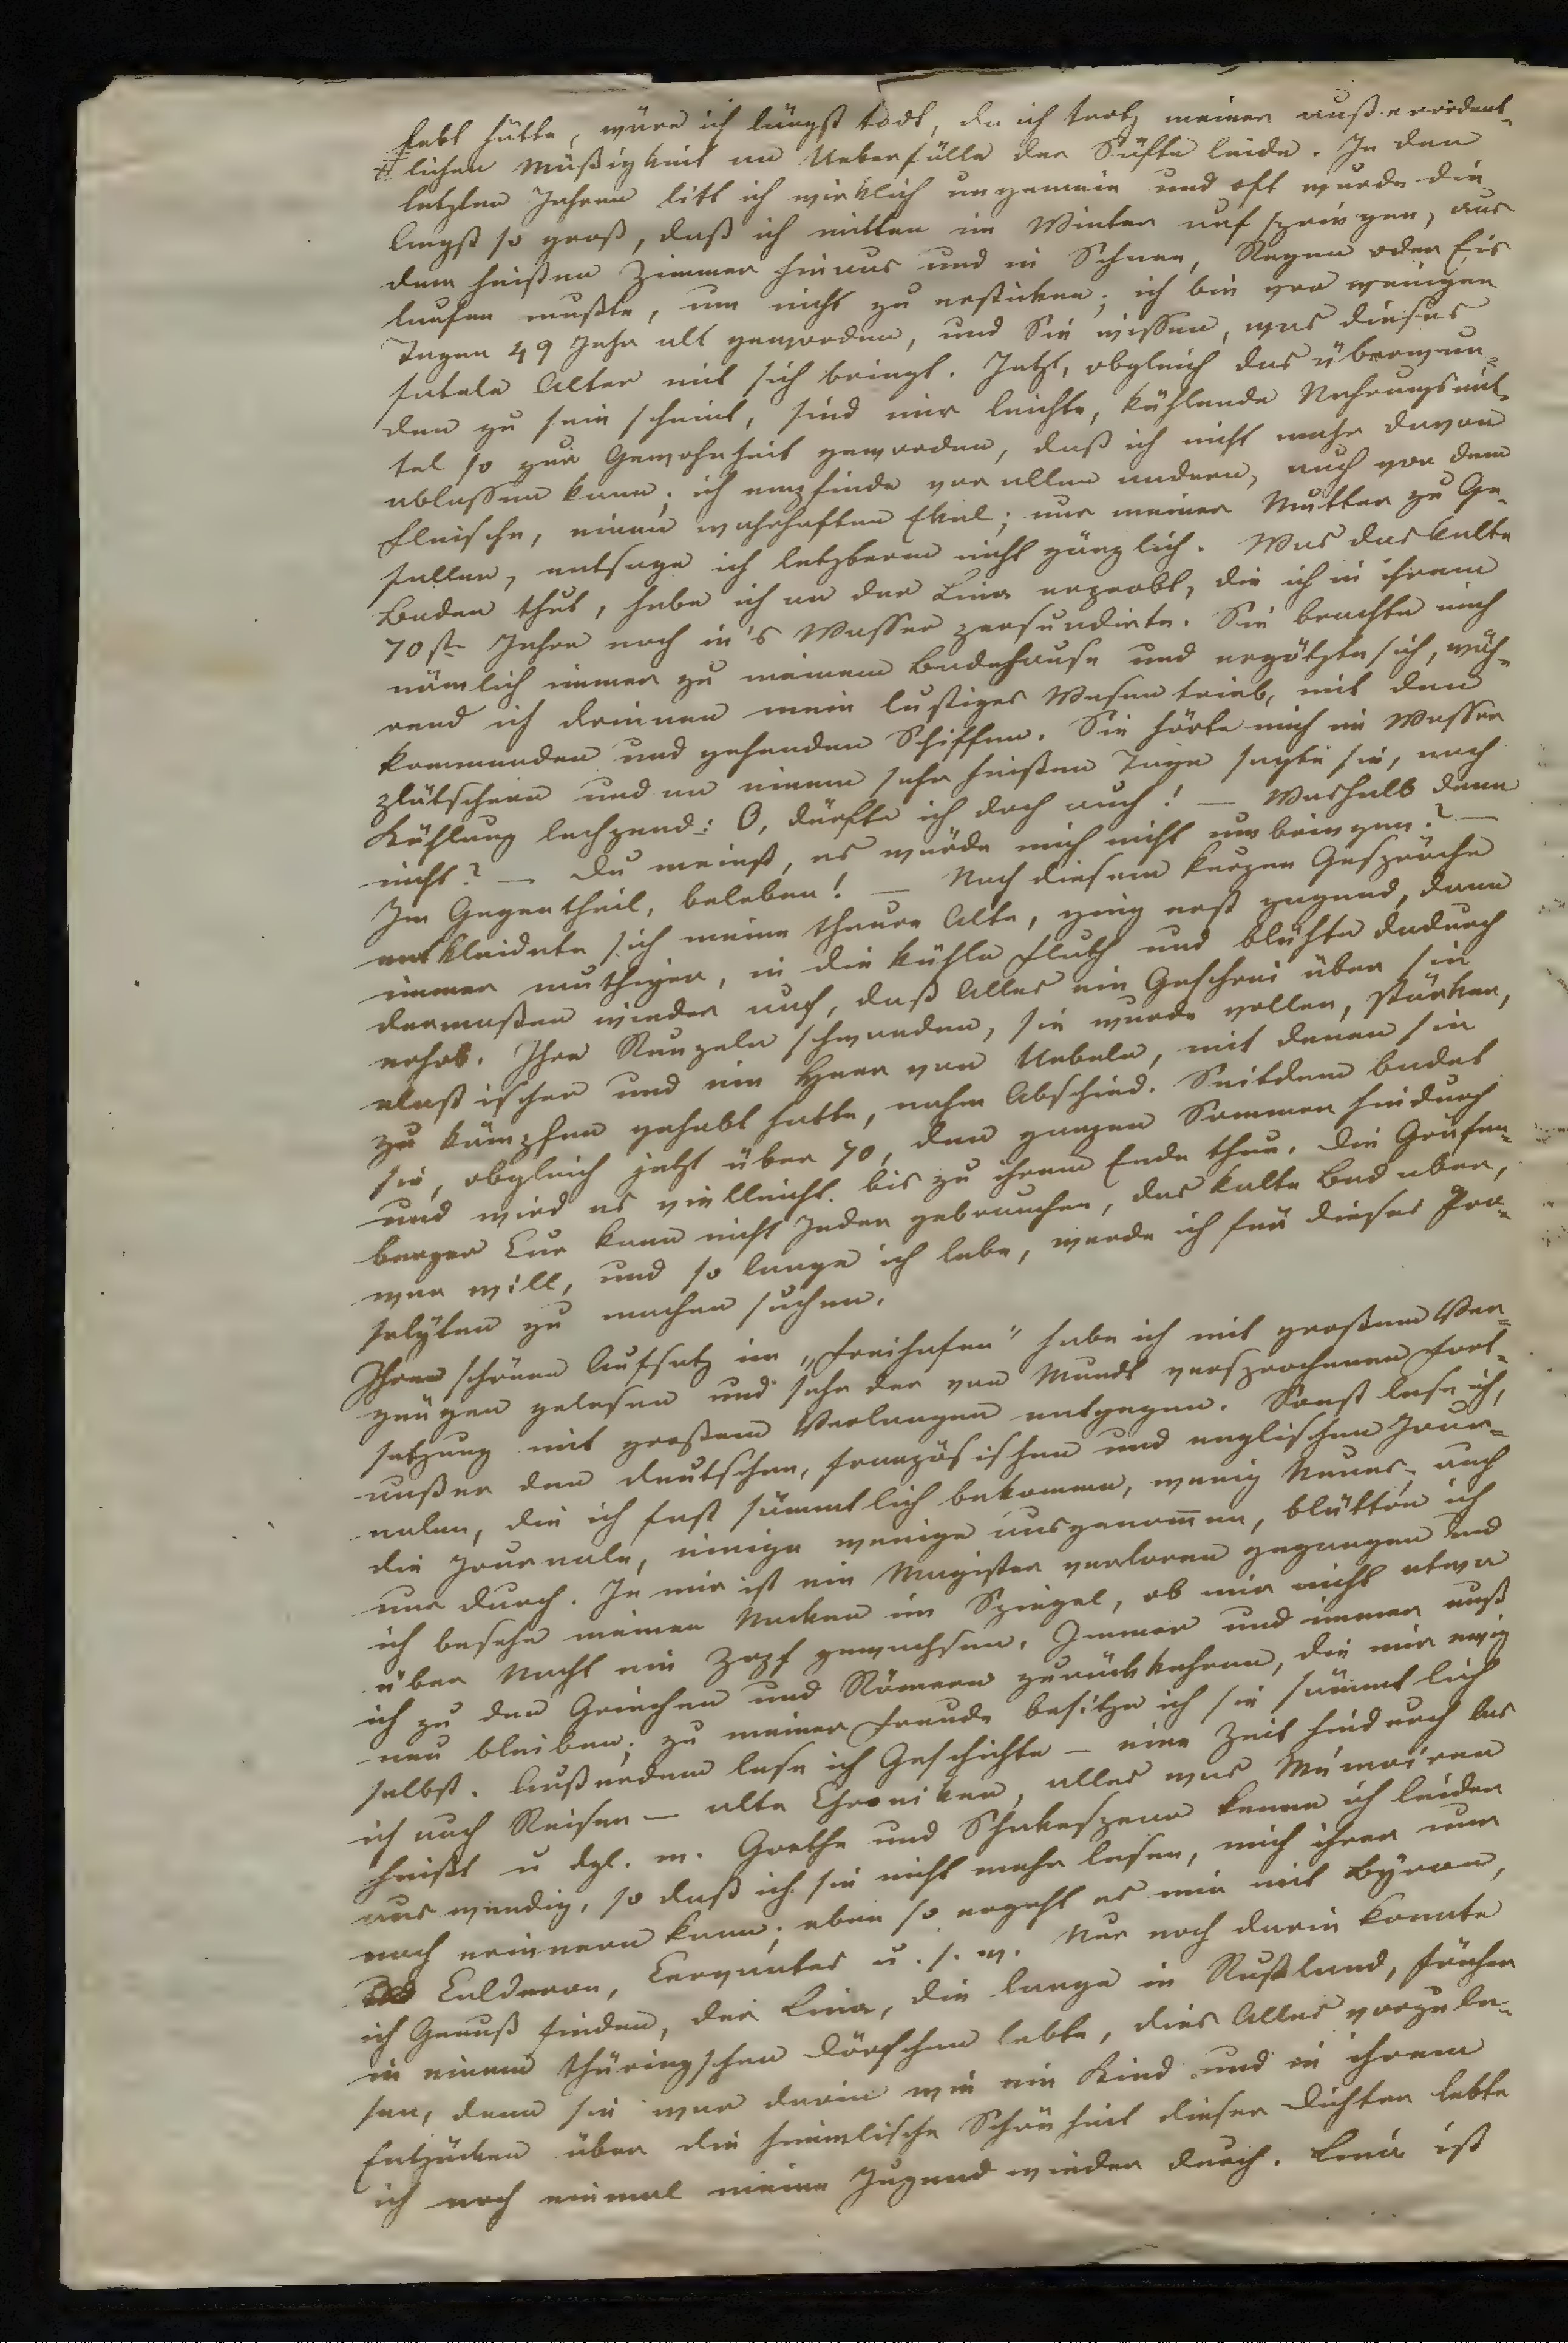 lebt hätte, wäre ich längst todt, da ich trotz meiner außerordent-
lichen Mäßigkeit an Ueberfülle der Säfte leide. In den
letzten Jahren litt ich wirklich ungemein und oft wurde die
Angst so groß, daß ich mitten im Winter aufspringen, aus
dem heißen Zimmer hinaus und in Schnee, Regen oder Eis
laufen mußte, um nicht zu ersticken; ich bin vor wenigen
Tagen 49 Jahr alt geworden, und Sie wissen, was dieses
fatale Alter mit sich bringt. Jetzt, obgleich das überwun-
den zu sein scheint, sind mir leichte, kühlende Nahrungsmit-
tel so zur Gewohnheit geworden, daß ich nicht mehr davon
ablassen kann; ich empfinde vor allen andern, auch vor dem
Fleische, einen wahrhaften Ekel; nur meiner Mutter zu Ge-
fallen, entsage ich letzterem nicht gänzlich. Was das kalte
Baden thut, habe ich an der Lina erprobt, die ich in ihrem
70st. Jahre noch in's Wasser persuadirte. Sie brachte mich
nämlich immer zu meinem Badehause und ergötzte sich, wäh-
rend ich drinnen mein lustiges Wesen trieb, mit den
kommenden und gehenden Schiffen. Sie hörte mich im Wasser
plätschern und an einem sehr heißen Tage sagte sie, nach
Kühlung lechzend: O, dürfte ich doch auch! — Weshalb denn
nicht? — Du meinst, es würde mich nicht umbringen? —
Im Gegentheil, beleben! — Nach diesem kurzen Gespräche
entkleidete sich meine theure Alte, ging erst zagend, dann
immer muthiger, in die kühle Fluth und blühte dadurch
dermaßen wieder auf, daß Alles ein Geschrei über sie
erhob. Ihre Runzeln schwanden, sie wurde voller, stärker,
elastischer und ein Heer von Uebeln, mit denen sie
zu kämpfen gehabt hatte, nahm Abschied. Seitdem badet
sie, obgleich jetzt über 70, den ganzen Sommer hindurch
und wird es vielleicht bis zu ihrem Ende thun. Die Gräfen-
berger Cur kann nicht Jeder gebrauchen, das kalte Bad aber,
wer will, und so lange ich lebe, werde ich für dieses Pro-
selyten zu machen suchen.
Ihren schönen Aufsatz im „Freihafen" habe ich mit großem Ver-
gnügen gelesen und sehe der von Mundt versprochenen Fort-
setzung mit großem Verlangen entgegen. Sonst lese ich,
außer den deutschen, französischen und englischen Jour-
nalen, die ich fast sämmtlich bekomme, wenig Neues; auch
die Journale, einige wenige ausgenommen, blättre ich
nur durch. In mir ist ein Magister verloren gegangen und
ich besehe meinen Nacken im Spiegel, ob mir nicht etwa
über Nacht ein Zopf gewachsen. Immer und immer muß
ich zu den Griechen und Römern zurückkehren, die mir ewig
neu bleiben; zu meiner Freude besitze ich sie sämmtlich
selbst. Außerdem lese ich Geschichte — eine Zeit hindurch las
ich auch Reisen — alte Chroniken, alles was Mémoiren
heißt u dgl. m. Goethe und Shakespear kenne ich leider
auswendig, so daß ich sie nicht mehr lesen, mich ihrer nur
noch erinnern kann; eben so ergeht es mir mit Byron,
Calderon, Cervantes u. s. w. Nur noch darin konnte
ich Genuß finden, der Lina, die lange in Rußland, früher
in einem thüringschen Dörfchen lebte, dies Alles vorzule-
sen, denn sie war darin wie ein Kind und in ihrem
Entzücken über die himmlische Schönheit dieser Dichter lebte
ich noch einmal meine Jugend wieder durch. Lina ist